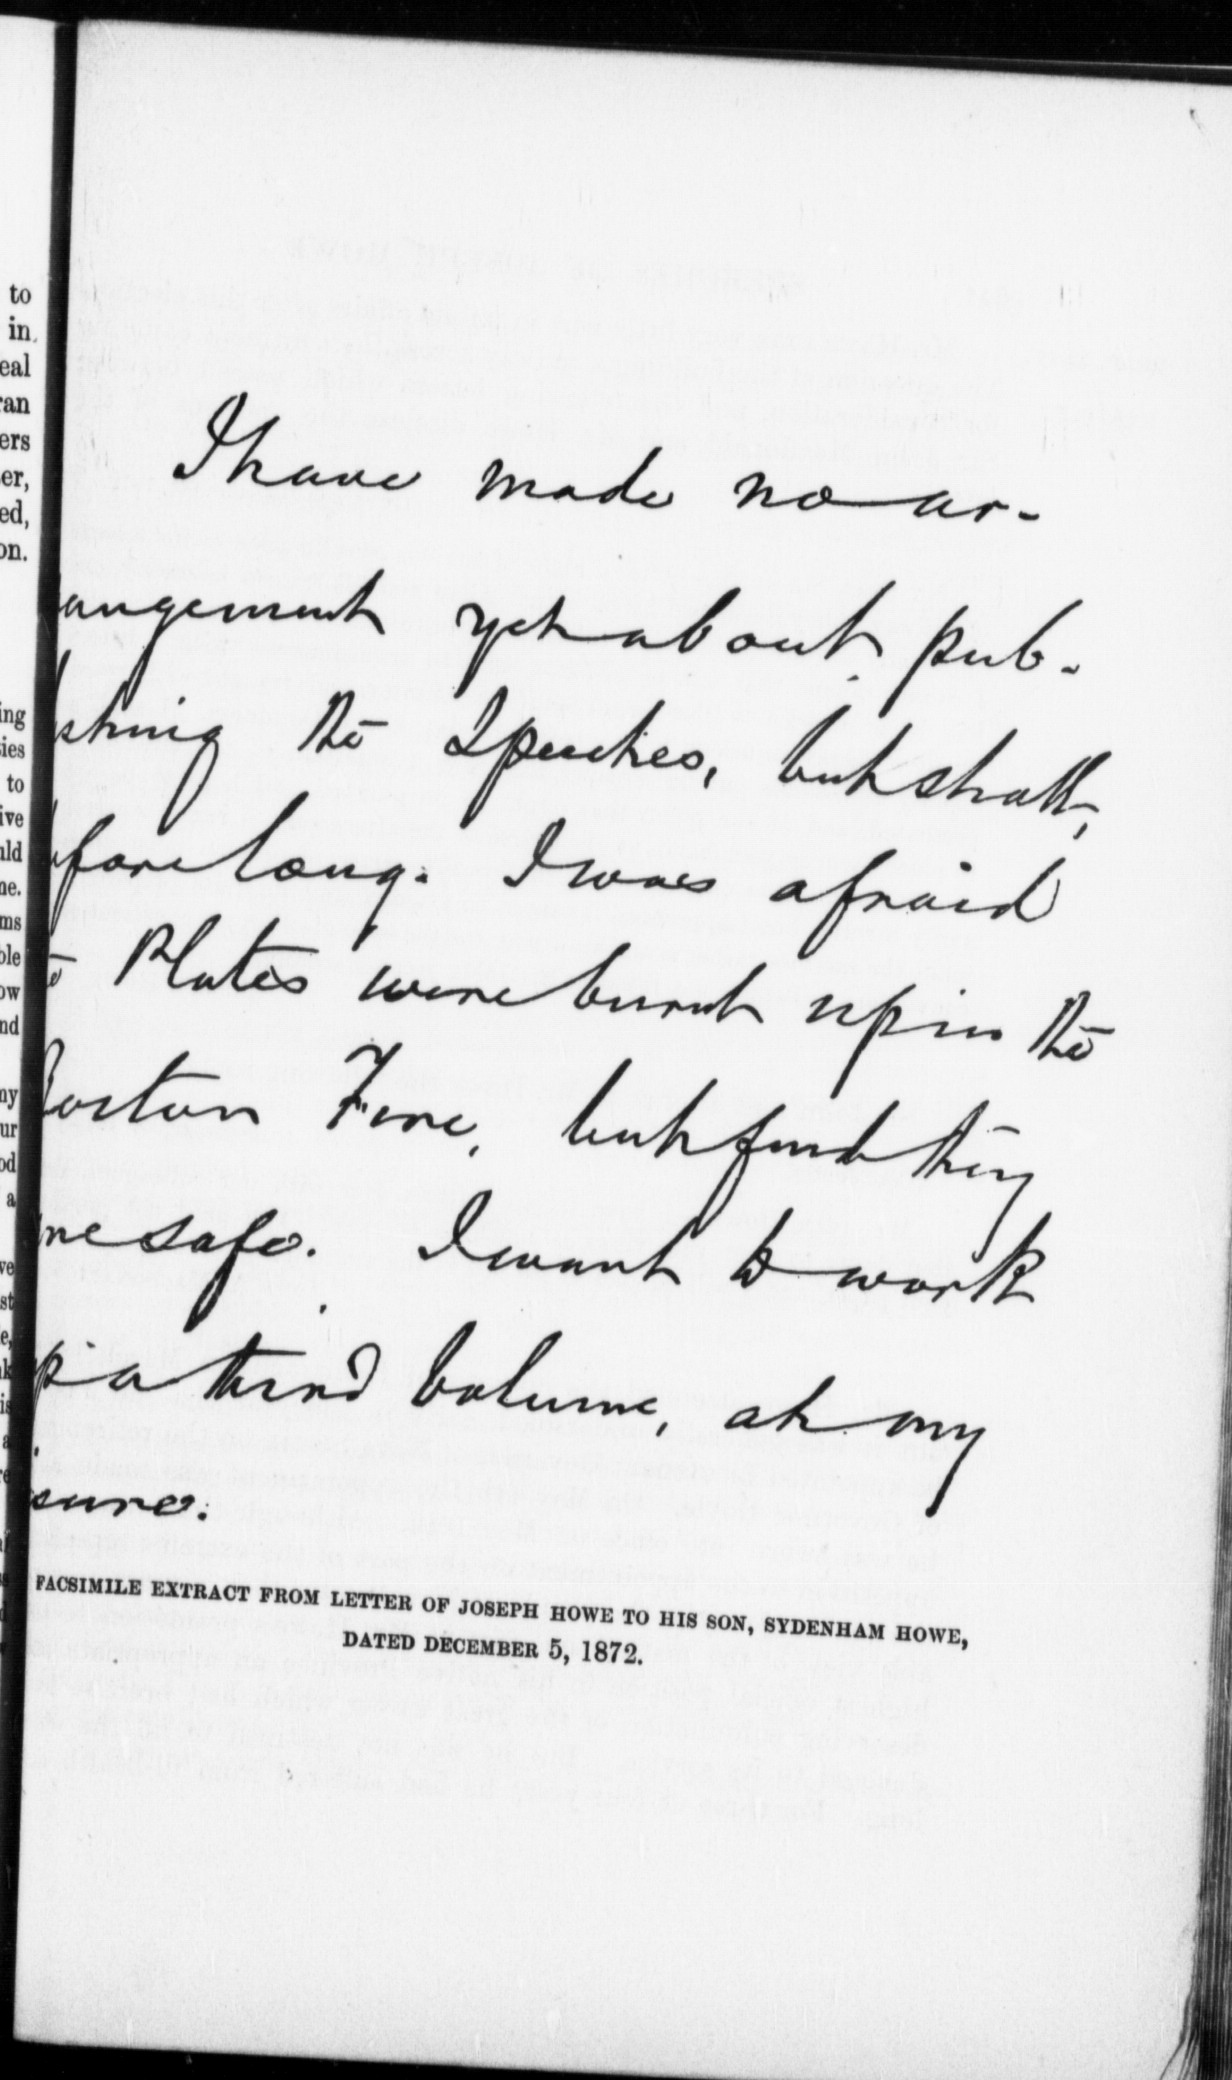 to
in
eal
ran
ers
er,
ed,
on.
ing
sies
to
ive
uld
ne.
ms
ble
ow
nd
ny
ur
od
a
ve
st
e,
k
is
a
re
I have made no ar-
angement yet about pub-
shing the Speeches, but shall,
efore long. I was afraid
e Plates were burnt up in the
Boston Fire, but find they
are safe. I want to work
up a third volume, at my
sure.
FACSIMILE EXTRACT FROM LETTER OF JOSEPH HOWE TO HIS SON, SYDENHAM HOWE,
DATED DECEMBER 5, 1872.